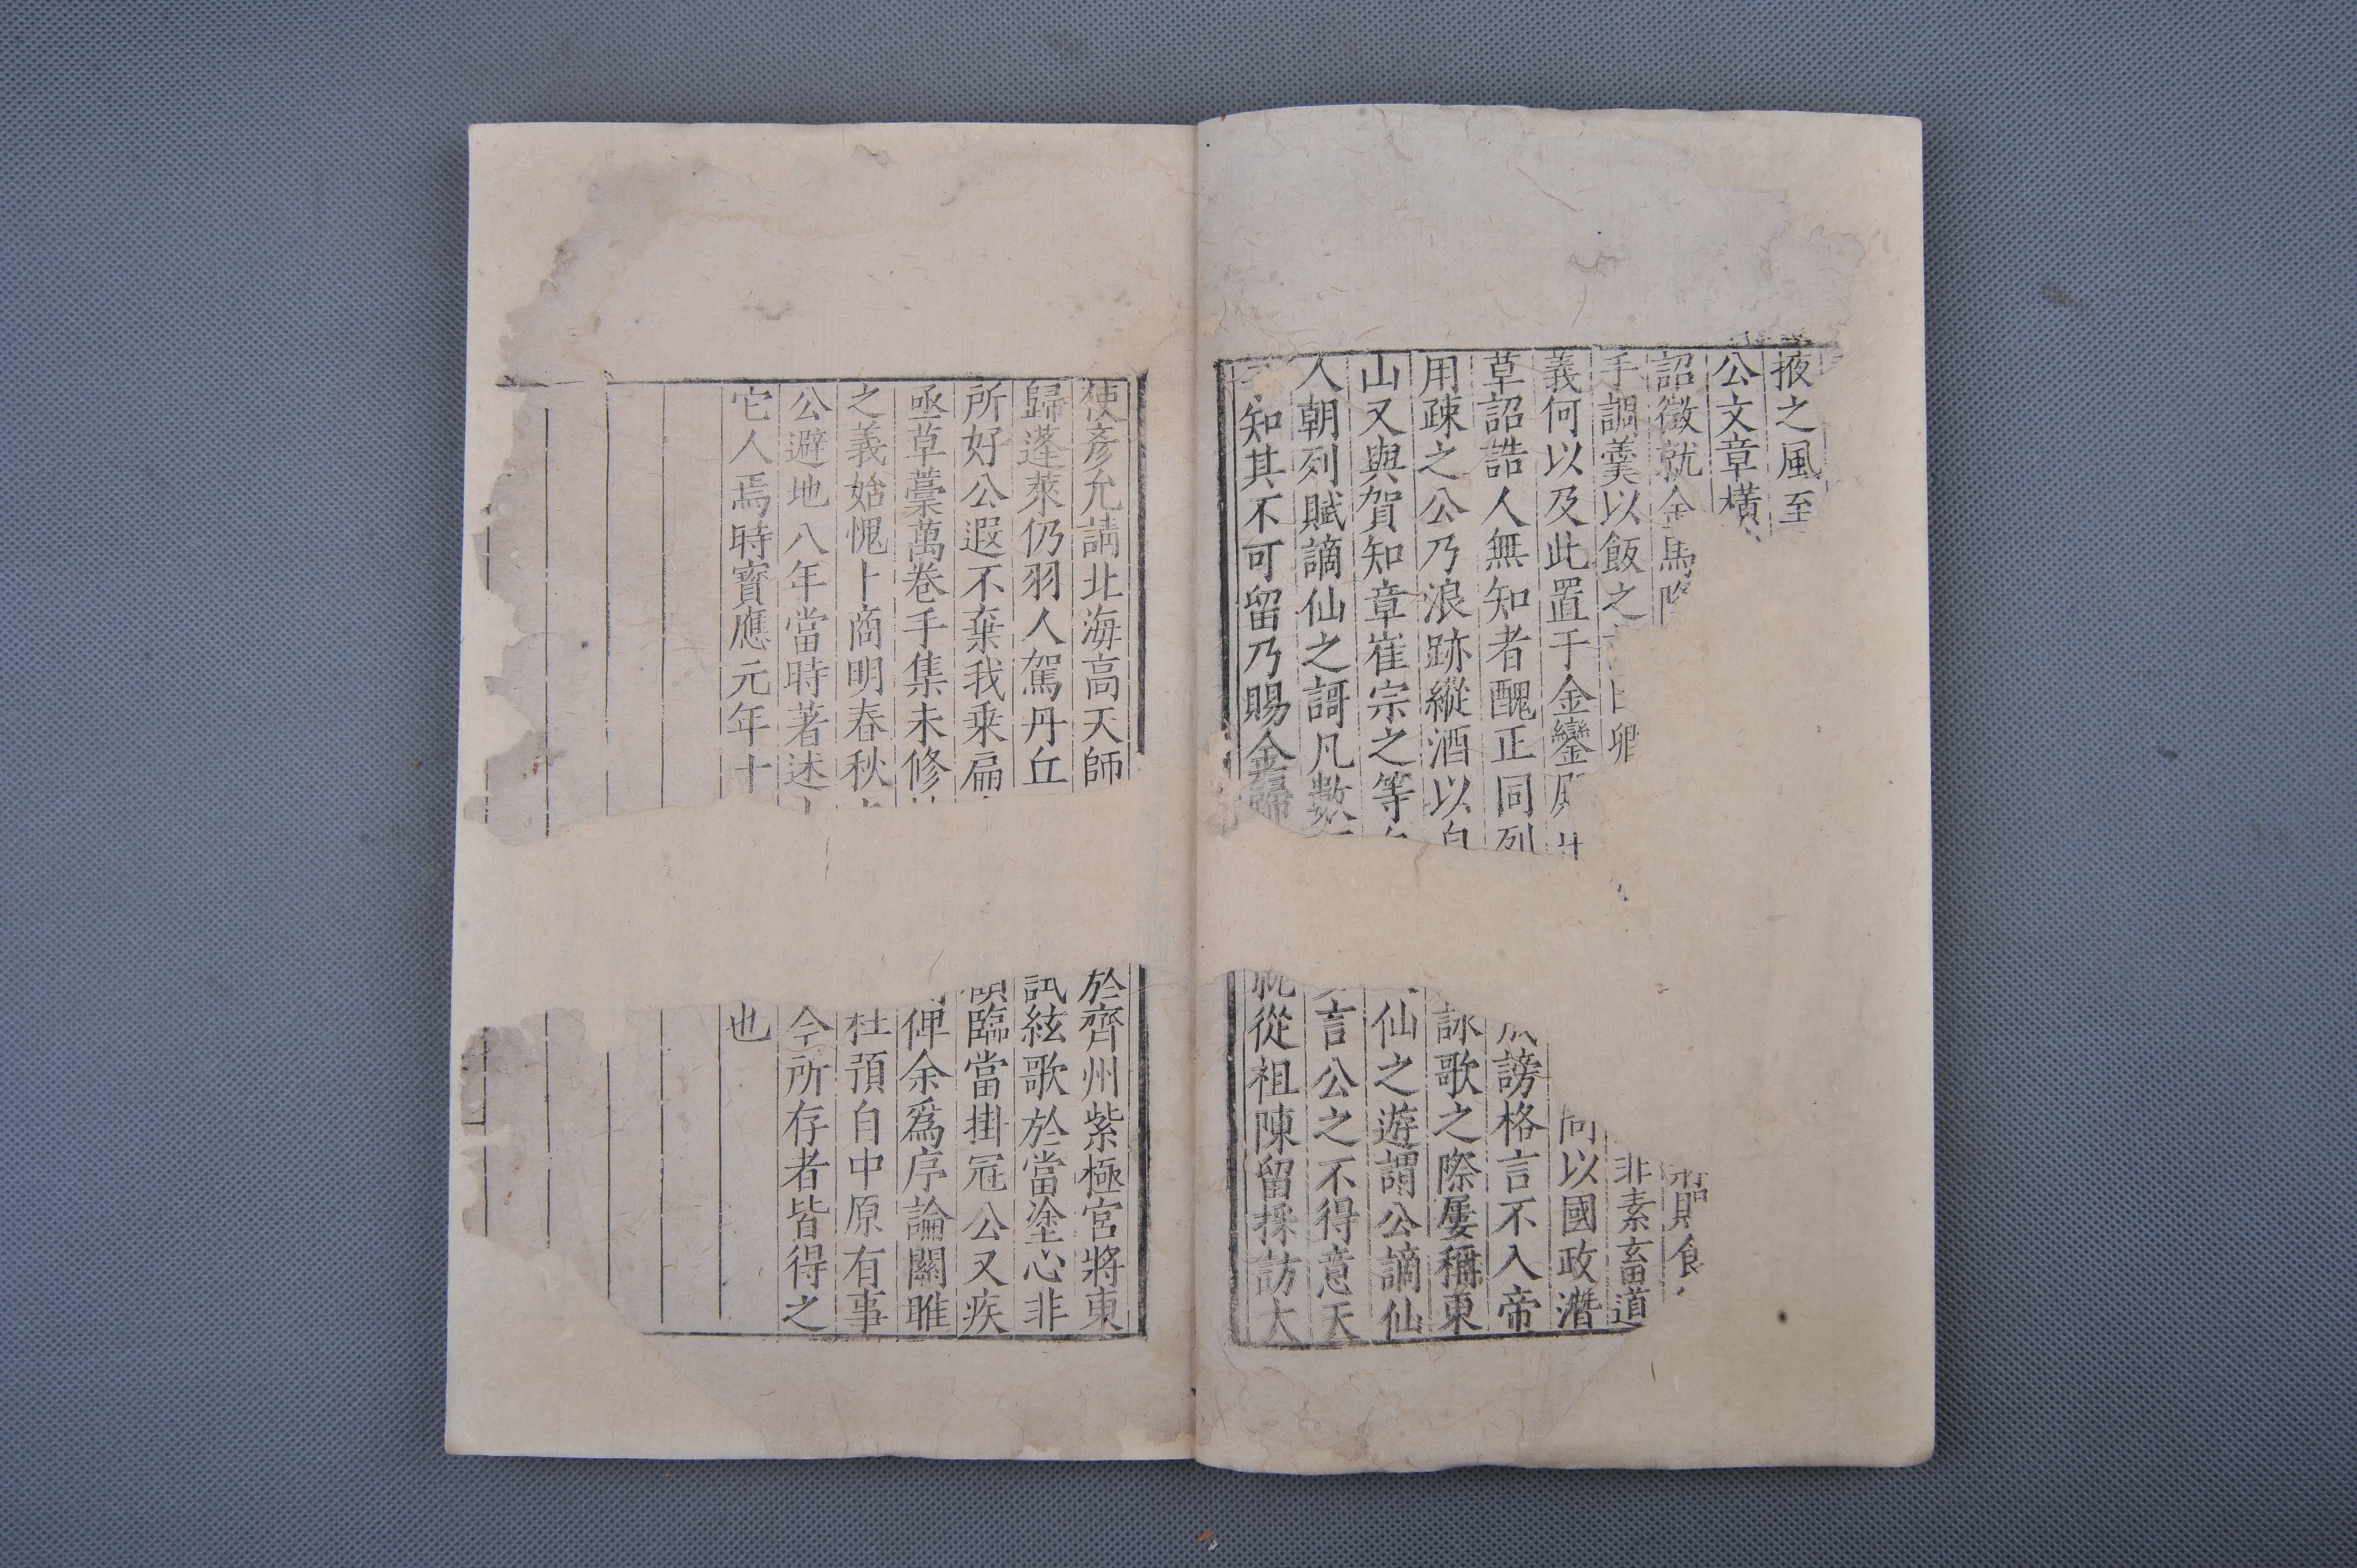 掖之風至
公文章橫
詔徵就金馬
手調羹以飯之
非素畜道
義何以及此置于金鑾
問以國政潛
草詔誥人無知者醜正同列
謗格言不入帝
用疎之公乃浪跡縱酒以自
詠歌之際屢稱東
山又與賀知章崔宗之等
仙之遊謂公謫仙
人朝列賦謫仙之謌凡數
言公之不得意天
知其不可留乃賜金歸
就從祖陳留採訪大
使彥允請北海高天師
於齊州紫極宮將東
歸蓬萊仍羽人駕丹丘
訊絃歌於當塗心非
所好公遐不棄我乘扁
臨當掛冠公又疾
亟草藁萬卷手集未修
俾余爲序論關雎
之義始愧卜商明春秋
杜預自中原有事
公避地八年當時著述
今所存者皆得之
它人焉時寶應元年十
也